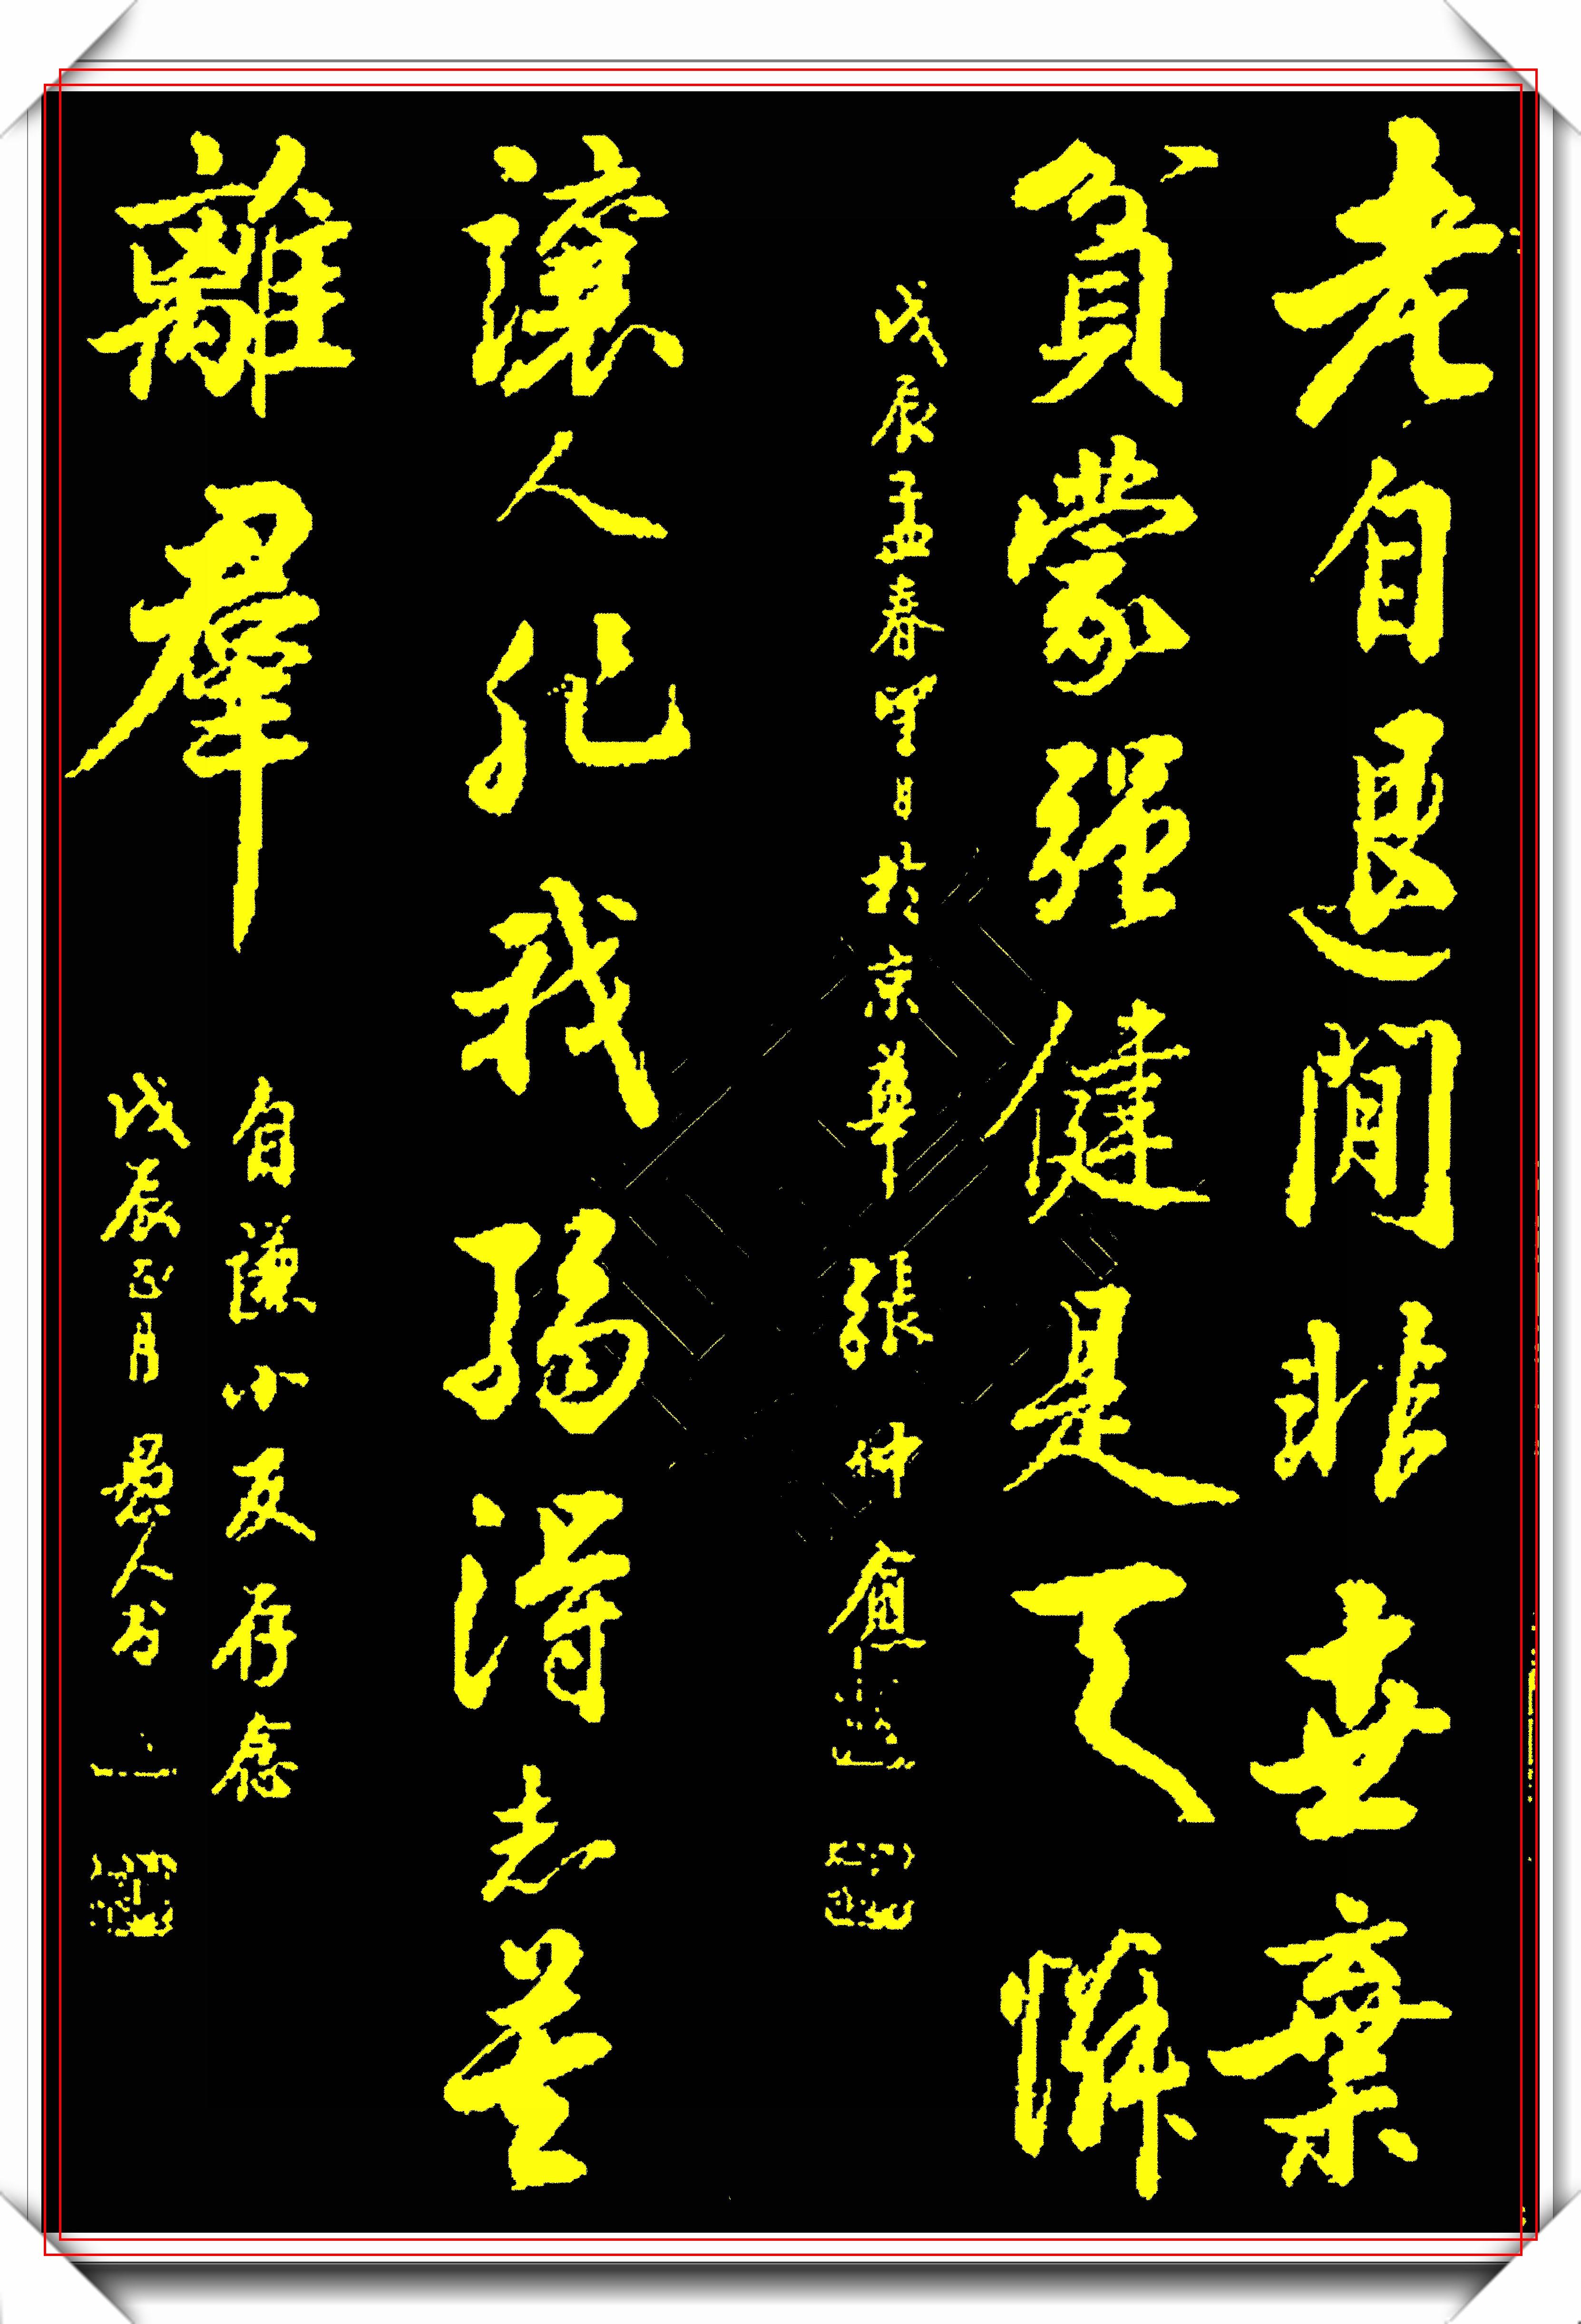 老自退閒非世棄
貧蒙强健是天憐
戊辰孟春望日於京華 張仲愈
讓人非我弱得志莫
離羣
自謙小友存念
戊辰正月 愚人书